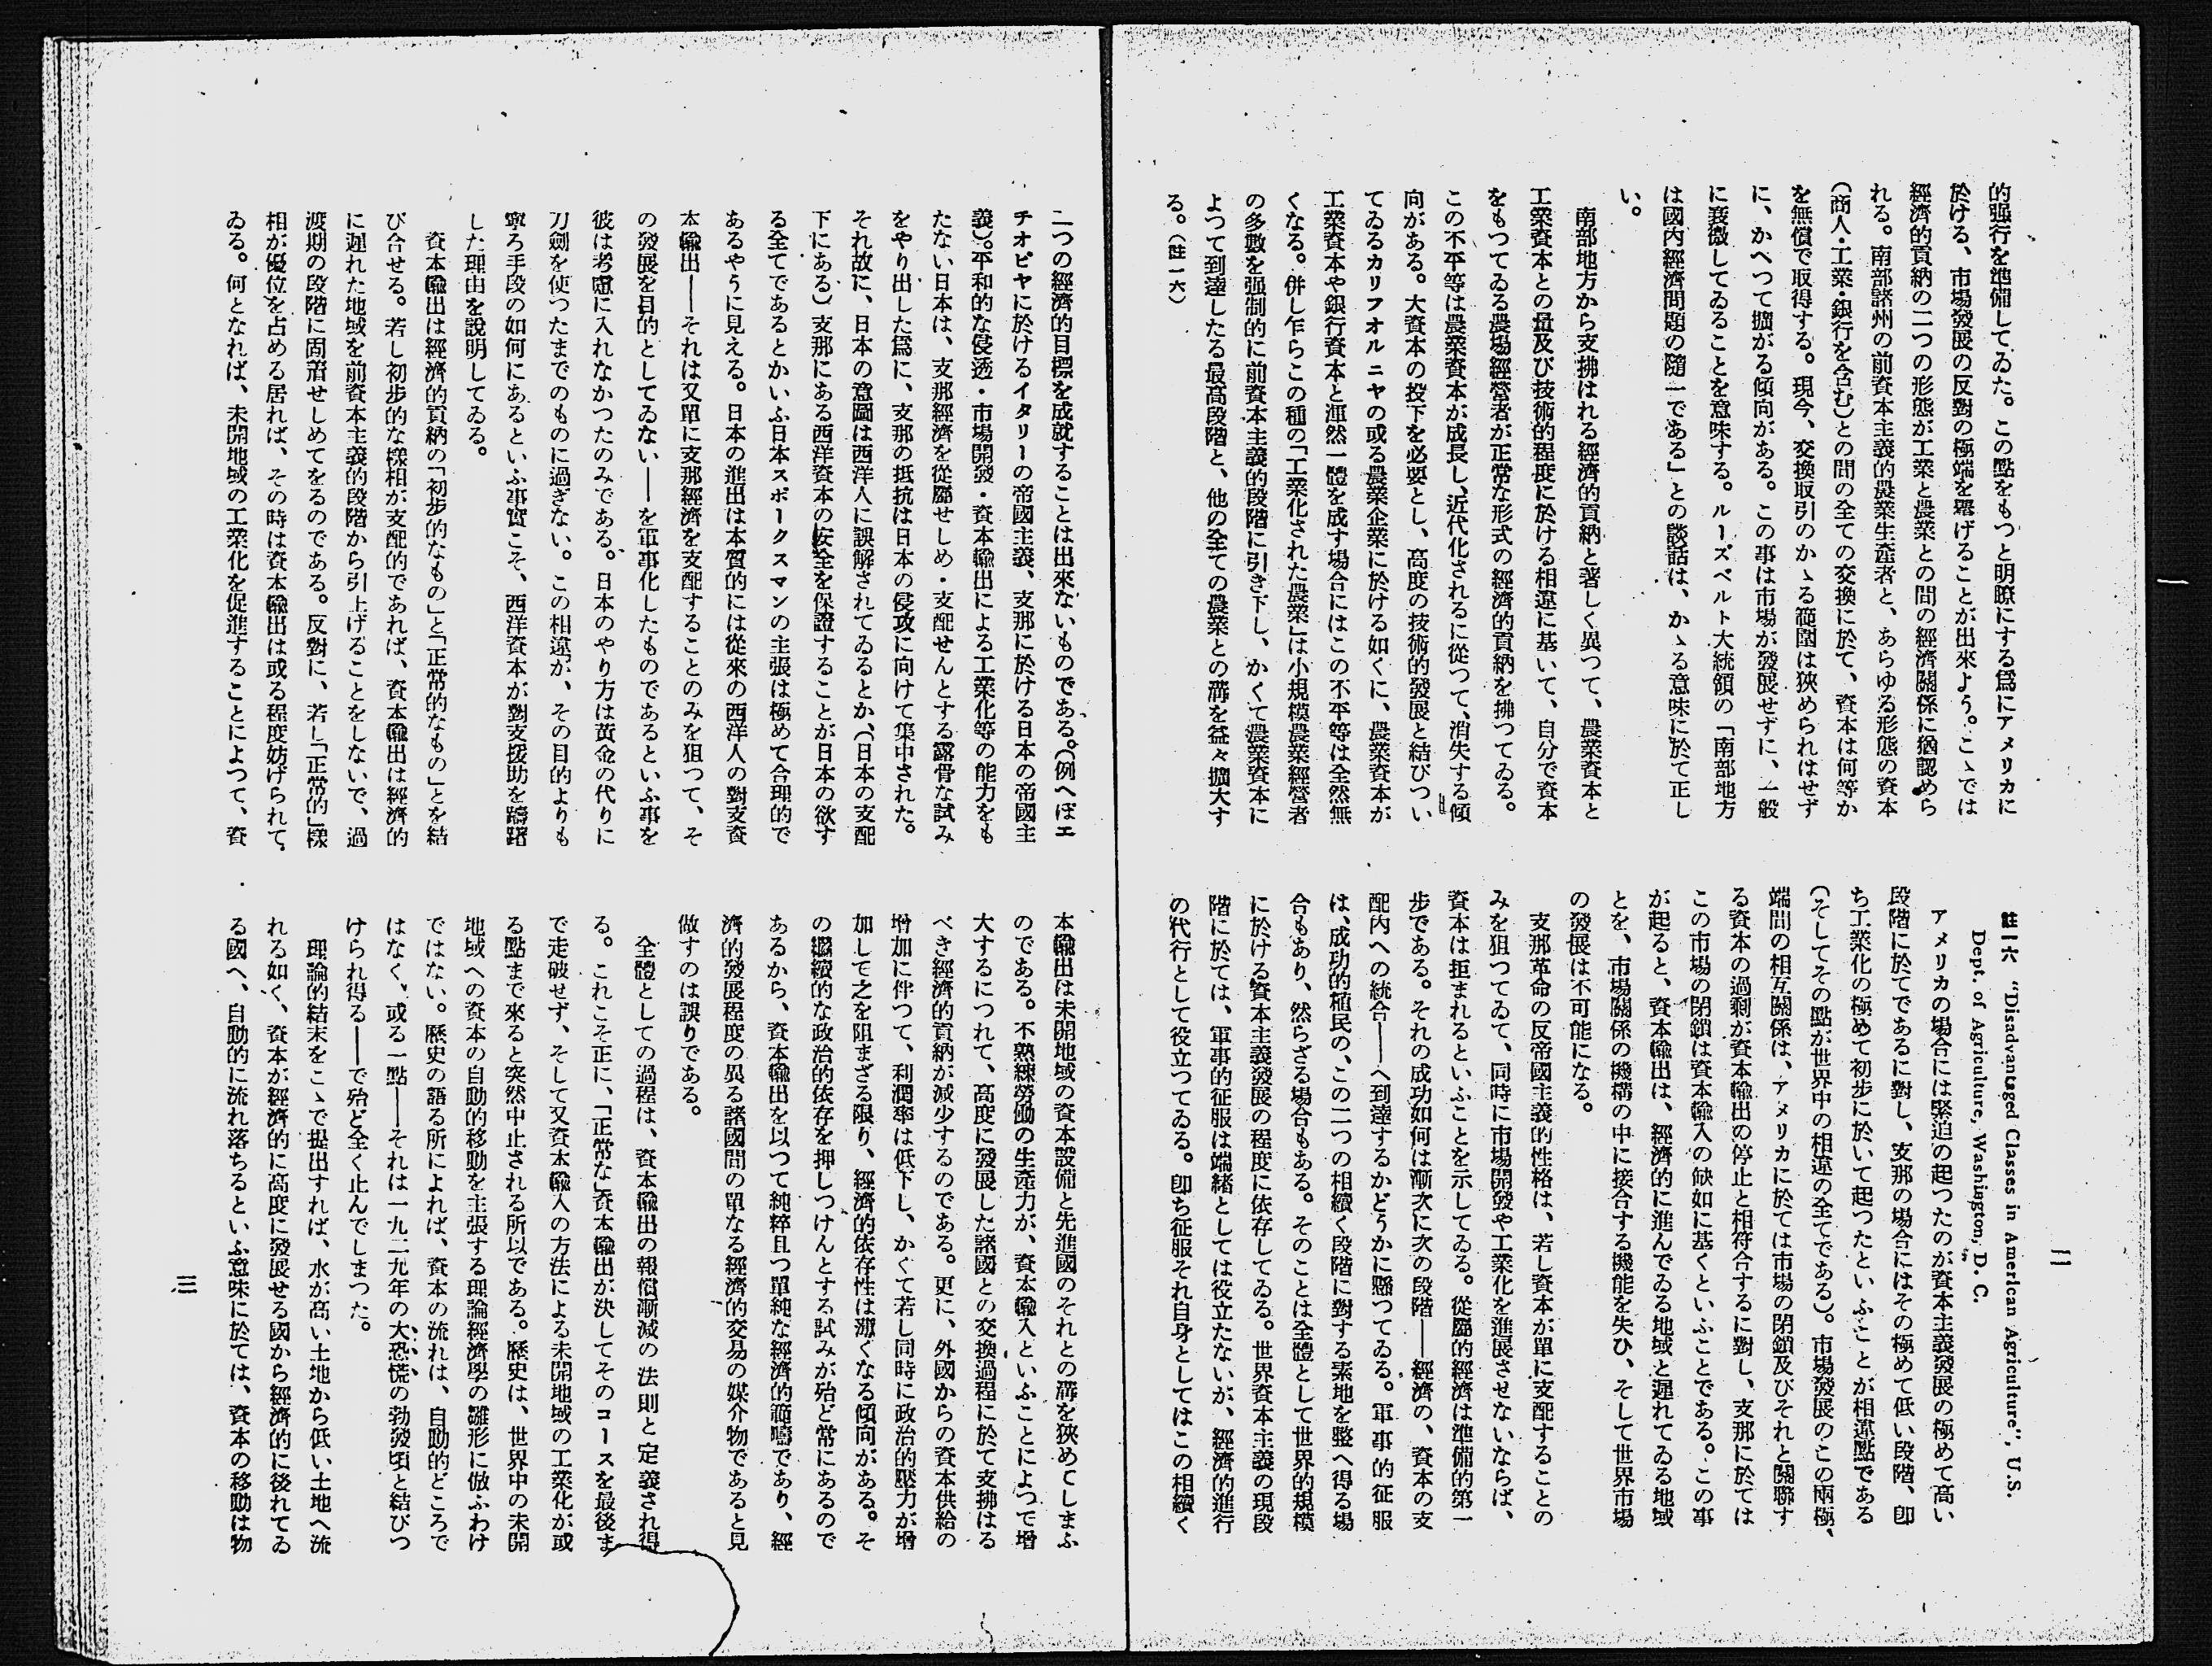 的强行を準備してゐた。この點をもつと明瞭にする爲にアメリカに
於ける、市場發展の反對の極端を擧げることが出來よう。こゝでは
經濟的貢納の二つの形態が工業と農業との間の經濟關係に猶認めら
れる。南部諸州の前資本主義的農業生產者と、あらゆる形態の資本
(商人・工業・銀行を含む)との間の全ての交換に於て、資本は何等か
を無償で取得する。現今、交換取引のかゝる範圍は狹められはせず
に、かへつて擴がる傾向がある。この事は市場が發展せずに、一般
に衰微してゐることを意味する。ルーズベルト大統領の「南部地方
は國內經濟問題の隨一である」との談話は、かゝる意味に於て正し
い。
南部地方から支拂はれる經濟的貢納と著しく異つて、農業資本と
工業資本との量及び技術的程度に於ける相違に基いて、自分で資本
をもつてゐる農場經營者が正常な形式の經濟的貢納を拂つてゐる。
この不平等は農業資本が成長し、近代化されるに從つて、消失する傾
向がある。大資本の投下を必要とし、高度の技術的發展と結びつい
てゐるカリフオルニヤの或る農業企業に於ける如くに、農業資本が
工業資本や銀行資本と渾然一體を成す場合にはこの不平等は全然無
くなる。併し乍らこの種の「工業化された農業」は小規模農業經營者
の多數を强制的に前資本主義的段階に引き下し、かくて農業資本に
よつて到達したる最高段階と、他の全ての農業との溝を益々擴大す
る。(註一六)
註一六 "Disadvantaged Classes in American Agriculture", U.S.
Dept. of Agriculture, Washington, D. C.
アメリカの場合には緊迫の起つたのが資本主義發展の極めて高い
段階に於てであるに對し、支那の場合にはその極めて低い段階、卽
ち工業化の極めて初步に於いて起つたといふことが相違點である
(そしてその點が世界中の相違の全てである)。市場發展のこの兩極
端間の相互關係は、アメリカに於ては市場の閉鎖及びそれと關聯す
る資本の過剩が資本輸出の停止と相符合するに對し、支那に於ては
この市場の閉鎖は資本輸入の缺如に基くといふことである。この事
が起ると、資本輸出は、經濟的に進んでゐる地域と遲れてゐる地域
とを、市場關係の機構の中に接合する機能を失ひ、そして世界市場
の發展は不可能になる。
支那革命の反帝國主義的性格は、若し資本が單に支配することの
みを狙つてゐて、同時に市場開發や工業化を進展させないならば、
資本は拒まれるといふことを示してゐる。從屬的經濟は準備的第一
步である。それの成功如何は漸次に次の段階——經濟の、資本の支
配內への統合——へ到達するかどうかに懸つてゐる。軍事的征服
は、成功的植民の、この二つの相續く段階に對する素地を整へ得る場
合もあり、然らざる場合もある。そのことは全體として世界的規模
に於ける資本主義發展の程度に依存してゐる。世界資本主義の現段
階に於ては、軍事的征服は端緖としては役立たないが、經濟的進行
の代行として役立つてゐる。卽ち征服それ自身としてはこの相續く
二
二つの經濟的目標を成就することは出來ないものである。(例へばエ
チオピヤに於けるイタリーの帝國主義、支那に於ける日本の帝國主
義)。平和的な侵透・市場開發・資本輸出による工業化等の能力をも
たない日本は、支那經濟を從屬せしめ・支配せんとする露骨な試み
をやり出した爲に、支那の抵抗は日本の侵攻に向けて集中された。
それ故に、日本の意圖は西洋人に誤解されてゐるとか、(日本の支配
下にある)支那にある西洋資本の安全を保證することが日本の欲す
る全てであるとかいふ日本スポークスマンの主張は極めて合理的で
あるやうに見える。日本の進出は本質的には從來の西洋人の對支資
本輸出——それは又單に支那經濟を支配することのみを狙つて、そ
の發展を目的としてゐない——を軍事化したものであるといふ事を
彼は考慮に入れなかつたのみである。日本のやり方は黃金の代りに
刀劍を使つたまでのものに過ぎない。この相違が、その目的よりも
寧ろ手段の如何にあるといふ事實こそ、西洋資本が對支援助を躊躇
した理由を說明してゐる。
資本輸出は經濟的貢納の「初步的なもの」と「正常的なもの」とを結
び合せる。若し初步的な樣相が支配的であれば、資本輸出は經濟的
に遲れた地域を前資本主義的段階から引上げることをしないで、過
渡期の段階に固着せしめてをるのである。反對に、若し「正常的」樣
相が優位を占める居れば、その時は資本輸出は或る程度妨げられて
ゐる。何となれば、未開地域の工業化を促進することによつて、資
本輸出は未開地域の資本設備と先進國のそれとの溝を狹めてしまふ
のである。不熟練勞働の生產力が、資本輸入といふことによつて增
大するにつれて、高度に發展した諸國との交換過程に於て支拂はる
べき經濟的貢納が減少するのである。更に、外國からの資本供給の
增加に伴つて、利潤率は低下し、かくて若し同時に政治的壓力が增
加して之を阻まざる限り、經濟的依存性は薄くなる傾向がある。そ
の繼續的な政治的依存を押しつけんとする試みが殆ど常にあるので
あるから、資本輸出を以つて純粹且つ單純な經濟的範疇であり、經
濟的發展程度の異る諸國間の單なる經濟的交易の媒介物であると見
做すのは誤りである。
全體としての過程は、資本輸出の報償漸減の法則と定義され得
る。これこそ正に、「正常な」資本輸出が決してそのコースを最後ま
で走破せず、そして又資本輸入の方法による未開地域の工業化が或
る點まで來ると突然中止される所以である。歷史は、世界中の未開
地域への資本の自動的移動を主張する理論經濟學の雛形に倣ふわけ
ではない。歷史の語る所によれば、資本の流れは、自動的どころで
はなく、或る一點——それは一九二九年の大恐慌の勃發頃と結びつ
けられ得る——で殆ど全く止んでしまつた。
理論的結末をこゝで提出すれば、水が高い土地から低い土地へ流
れる如く、資本が經濟的に高度に發展せる國から經濟的に後れてゐ
る國へ、自動的に流れ落ちるといふ意味に於ては、資本の移動は物
三